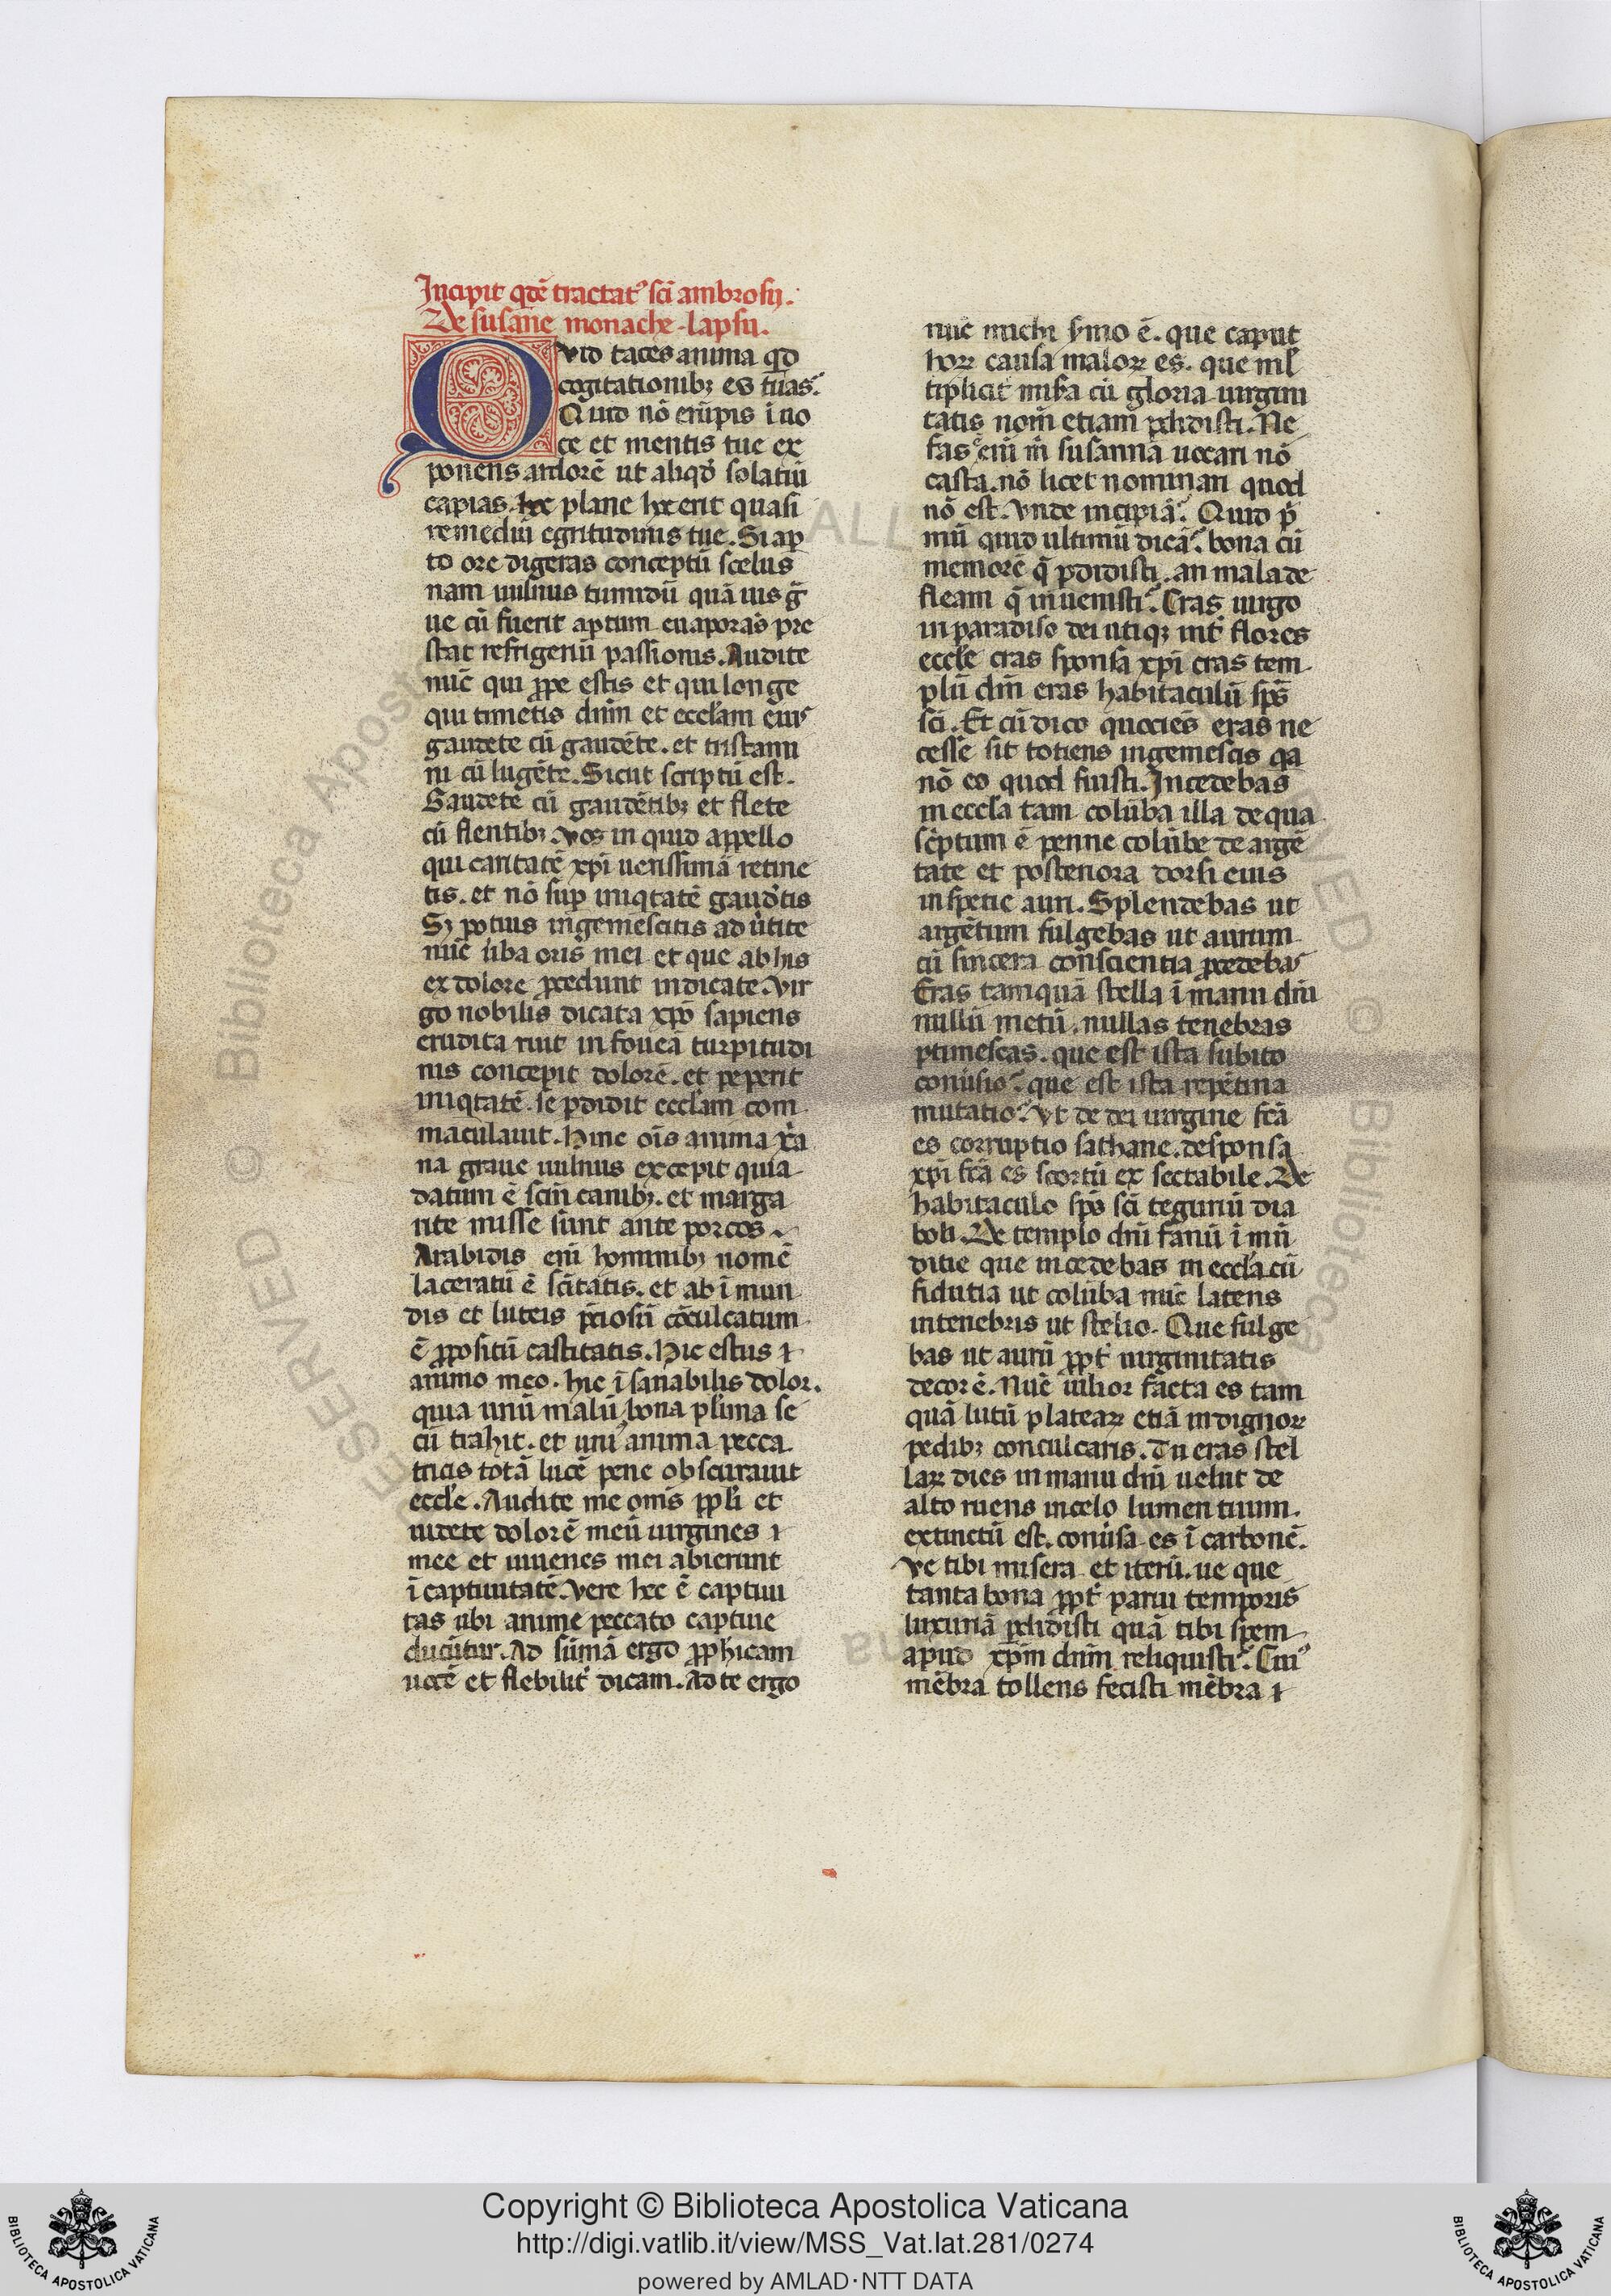 Incipit qdē tractatꝰ sc̄i ambrosij.
De susāne monache lapsu.
Qvid taces anima qd̄
cogitationibꝫ es tuas.
Quid nō erūpis ī uo
ce et mentis tue ex
ponens ardorē ut aliqd̓ solatiū
capias. hec plane hec erit quasi
remediū egritudinis tue. Si aꝑ
to ore digeras conceptū scelus
nam uulnus tumidū quāuis gͣ
ue cū fuerit aptum euaporās pre
stat refrigeriū passionis. Audite
nūc qui ꝓpe estis et qui longe
qui timetis dn̄m et eccl̄am eiuˢ
gaudete cū gaudēte. et tristami
ni cū lugēte. Sicut scriptū est.
Gaudete cū gaudētibꝫ et flete
cū flentibꝫ. Vos in quid appello
qui caritatē xp̄i uerissimā retine
tis. et nō suꝑ iniqtatē gaud̓tis
Sꝫ potius ingemescitis aduˀtite
nūc uˀba oris mei et que ab his
ex dolore ꝓcedunt indicate. Vir
go nobilis dicata xp̄o sapiens
erudita ruit in foueā turpitudi
nis concepit dolorē. et peperit
iniqtatē. se ꝑdidit eccl̄am com
maculauit. Hinc ōis anima xˀa
na graue uulnus excepit quia
datum ē sc̄m canibꝫ. et marga
rite misse sunt ante porcos
Arabidis eni hominibꝫ nomē
laceratū ē sc̄itatis. et ab īmun
dis et luteis p̄ciosū cōculcatum
ē ꝓpositū castitatis. Hic estus ı
animo meo. hic īsanabilis dolor.
quia unū malū bona plˀima se
cū trahit. et uniꝰ anima pecca
tricis totā lucē pene obscurauit
eccl̄e. Audite me om̄s ppl̄i et
uidete dolorē meū uirgines ı
mee et iuuenes mei abierunt
ī captiuitatē. Vere hec ē captiui
tas ubi anime peccato captiue
ducūtur. Ad sūmā ergo ꝓphicam
uocē et flebilit̓ dicam. Ad te ergo
nūc michi sˀmo ē. que caput
horꝝ causa malorꝝ es. que ml̓
tiplicit̓ misˀa cū gloria uirgini
tatis nom̄ etiam ꝑdidisti. Ne
fas eni m̄ susanna uocari nō
casta. nō licet nominari quod
nō est. Vnde incipiā. Quid pͥ
mū quid ultimū dicā. bona cū
memore q̄ ꝑdidisti. an mala de
fleam q̄ inuenisti. Eras uirgo
in paradiso dei utiqꝫ int̓ flores
eccl̄e eras sponsa xp̄i eras tem
plū dn̄i eras habitaculū sp̄s
sc̄i. Et cū dico quociēs eras ne
cesse sit totiens ingemescis qͣa
nō eo quod fuisti. Incedebas
in eccl̄a tam colūba illa de qua
scͥptum ē penne colūbe de argē
tate et posteriora dorsi eius
in spetie auri. Splendebas ut
argētum fulgebas ut aurum
cū sincera conscientia ꝓcedebaˢ
Eras tamquā stella ī manu dn̄i
nullū metū. nullas tenebras
ꝑtimescas. que est ista subito
conuˀsio. que est ista repētina
mutatio. Vt de dei uirgine fcā
es corruptio sathane. de sponsa
xp̄i fcā es scortū exsectabile. De
habitaculo sp̄s sc̄i teguriū dia
boli. De templo dn̄i fanū īmū
ditie que incedebas in eccl̄a cū
fidutia ut colūba nūc latens
in tenebris ut stelio. Que fulge
bas ut aurū ꝓpt̓ uirginitatis
decorē. Nūc uilior facta es tam
quā lutū platearꝝ etiā indignorꝝ
pedibꝫ conculcaris. Tu eras stel
larꝝ dies in manu dn̄i uelut de
alto ruens in celo lumen tuum.
extinctū est. conuˀsa es ī carbonē.
Ve tibi misera et iterū. ue que
tanta bona ꝓpt̓ parui temporis
luxuriā ꝑdidisti quā tibi spem
apud xp̄m dn̄m reliquisti. Cuiꝰ
mēbra tollens fecisti mēbra ı
Copyright © Biblioteca Apostolica Vaticana
http://digi.vatlib.it/view/MSS_Vat.lat.281/0274
powered by AMLAD·NTT DATA
BIBLIOTECA APOSTOLICA VATICANA
BIBLIOTECA APOSTOLICA VATICANA